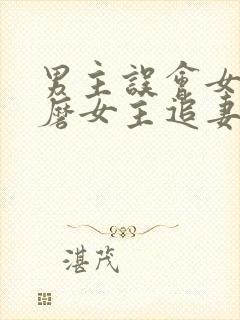 男主誤會女
磨女主追妻
湛茂